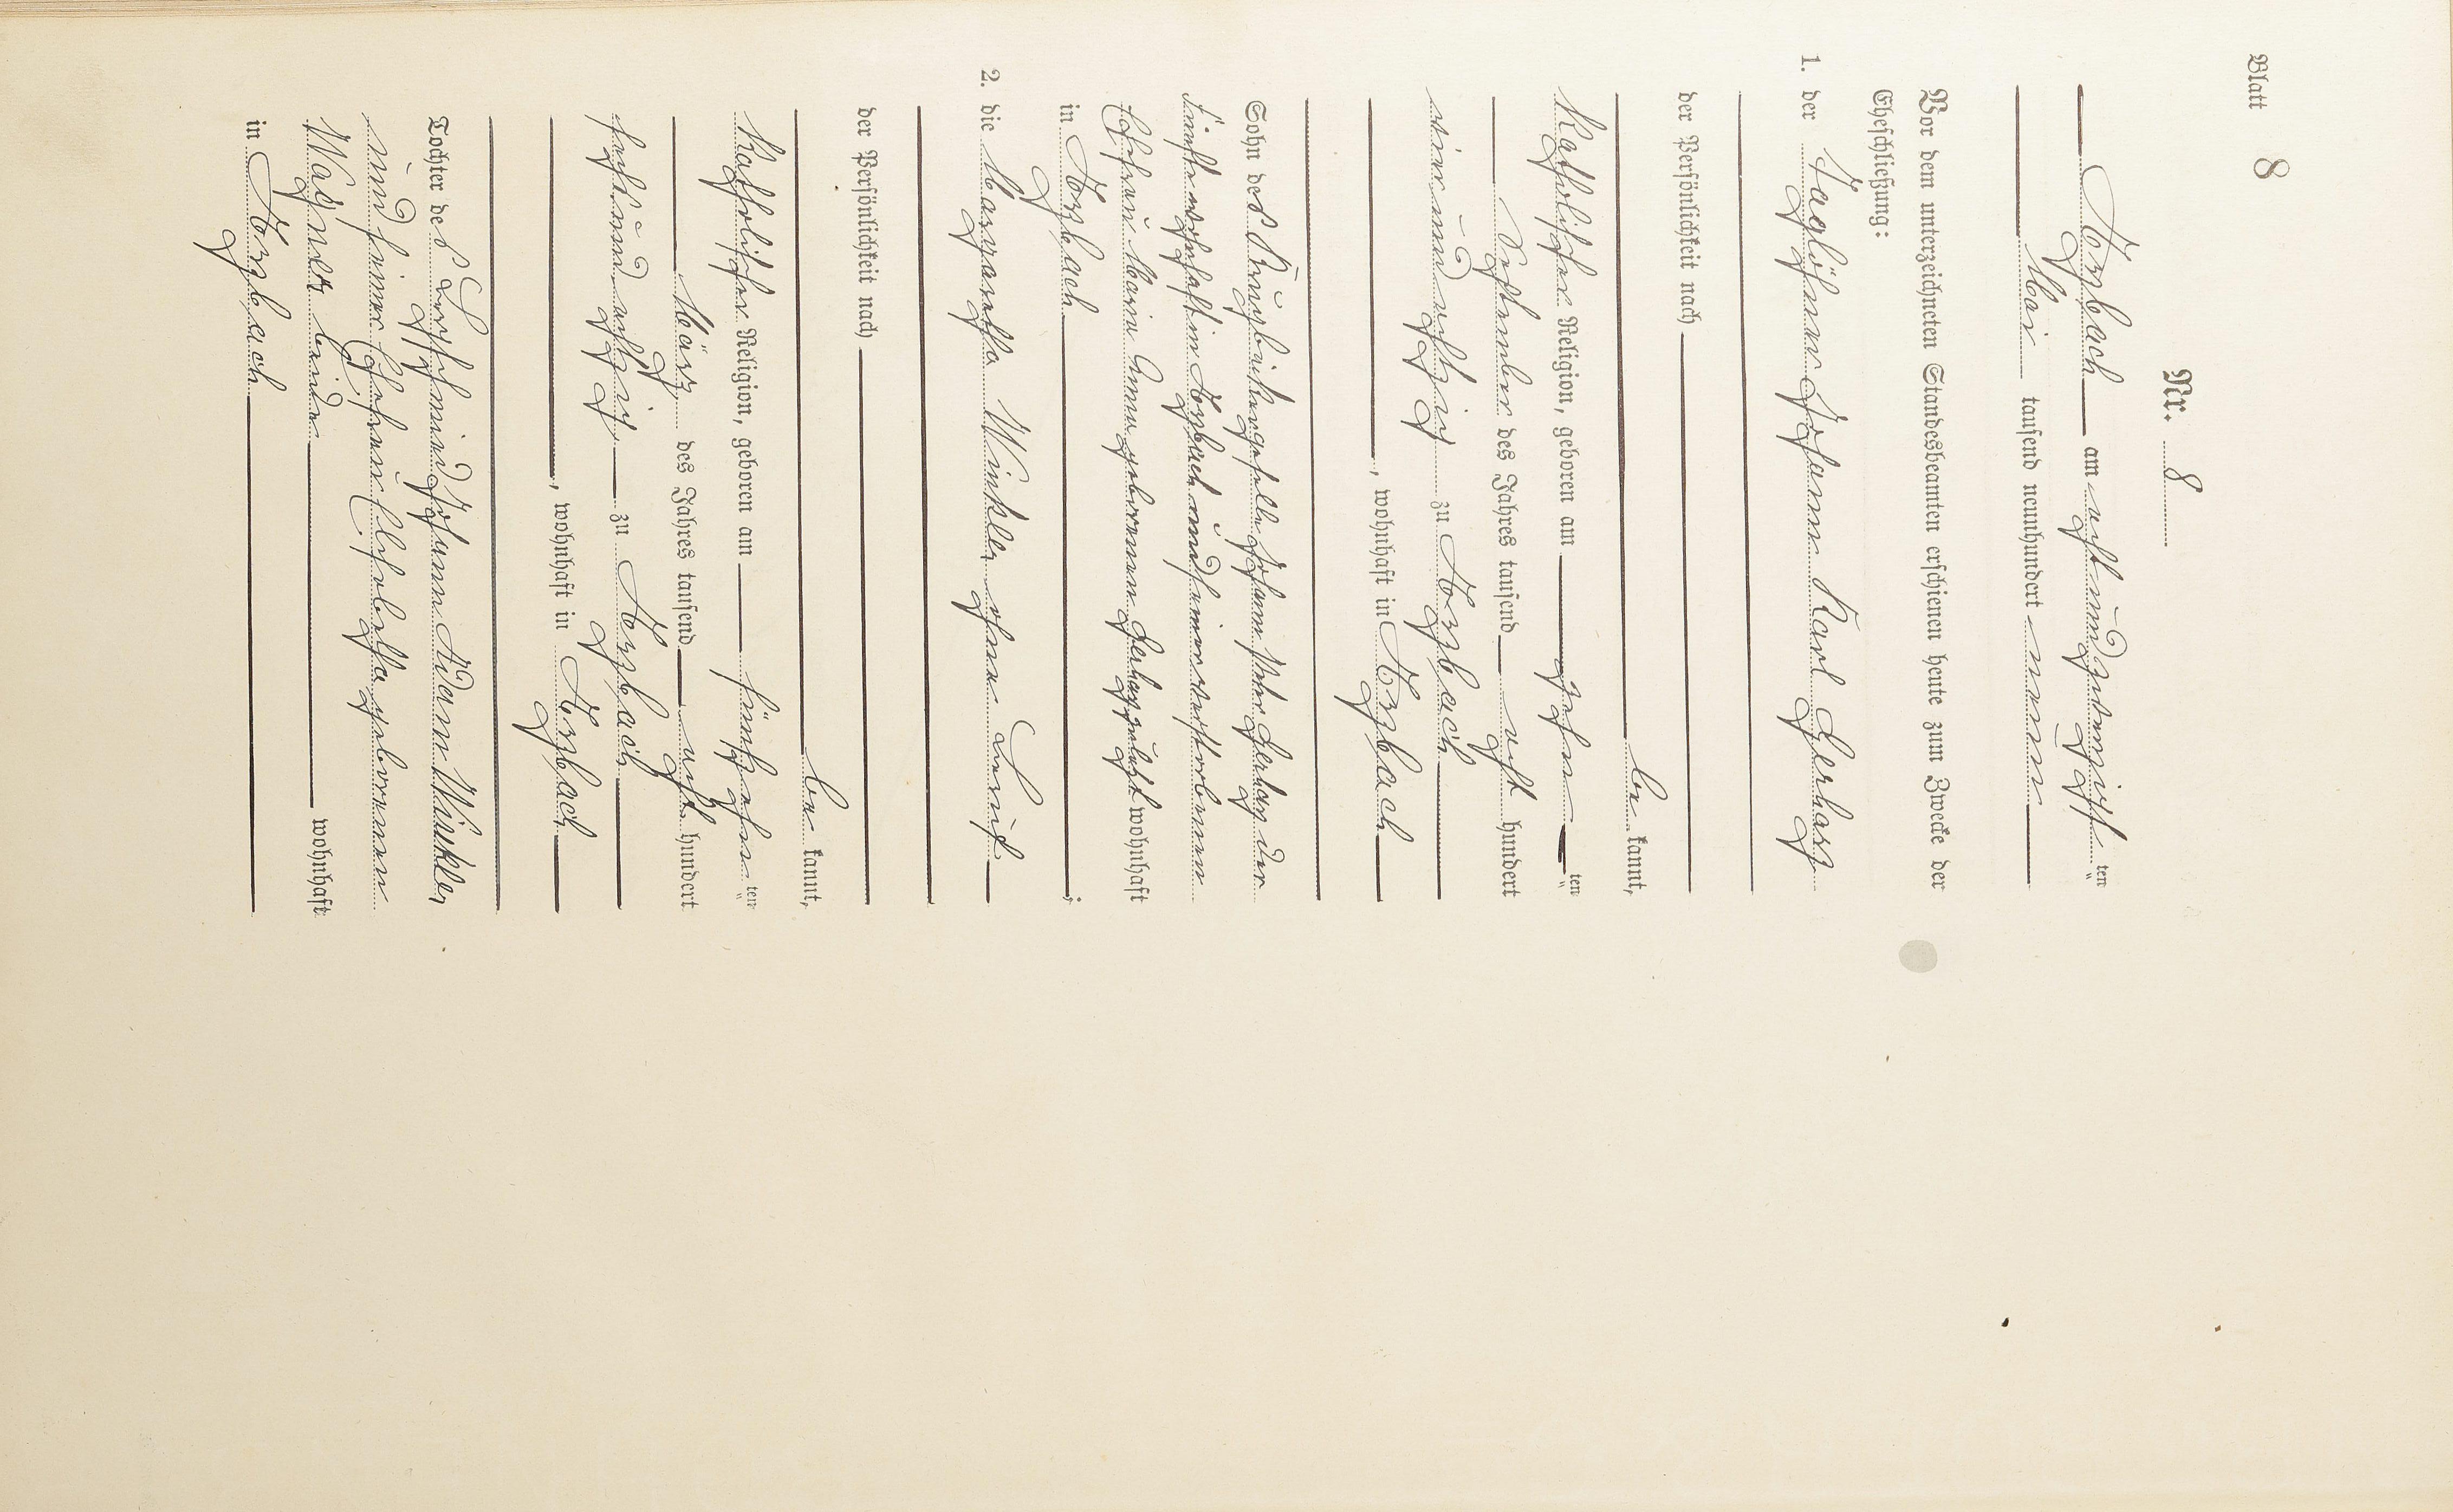 Blatt 8
Nr. 8
Arzbach am achtundzwanzigsten
Mai tausend neunhundert neun
Vor dem unterzeichneten Standesbeamten erschienen heute zum Zwecke der
Eheschließung:
1. der Taglöhner Johann Karl Gerharz
der Persönlichkeit nach
be kannt,
Katholischer Religion, geboren am zehn ten
September des Jahres tausend acht hundert
vierundachtzig zu Arzbach
, wohnhaft in Arzbach
Sohn des Johann Peter Gerharz der
wohnhaft in Arzbach und seiner verstorbenen
Ehefrau Maria Anna geborenen Gerharz zuletzt wohnhaft
in Arzbach ;
2. die Margaretha Winkler ohne Beruf
der Persönlichkeit nach
be kannt,
Katholischer Religion, geboren am fünfzehn ten
März des Jahres tausend acht hundert
sechsundachtzig zu Arzbach
, wohnhaft in Arzbach
Tochter des Johann Adam Winkler
und seiner Ehefrau Elisabetha geborenen
Wagner beide wohnhaft
in Arzbach